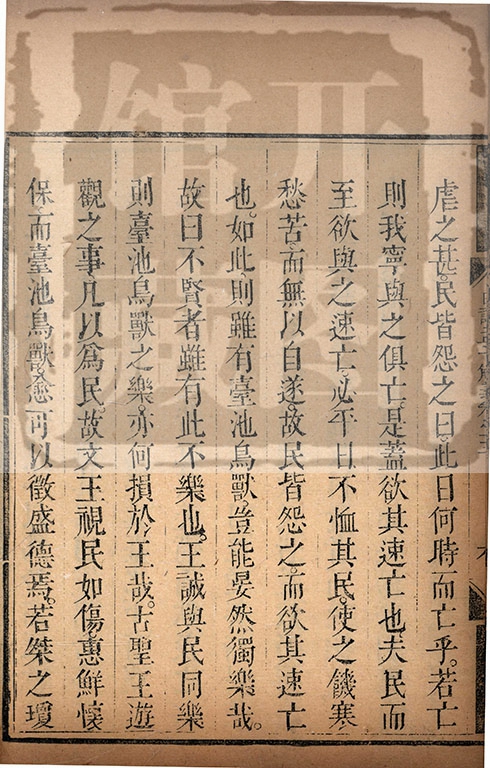 虐之甚。民皆怨之曰。此日何時而亡乎。若亡
則我寧與之俱亡。是蓋欲其速亡也夫民而
至欲與之速亡。必平日不恤其民。使之饑寒
愁苦。而無以自遂。故民皆怨之而欲其速亡
也。如此則雖有臺池鳥獸。豈能晏然獨樂哉。
故曰不賢者雖有此不樂也。王誠與民同樂
則臺池鳥獸之樂。亦何損於王哉。古聖王遊
觀之事。凡以爲民。故文王視民如傷。惠鮮懷
保。而臺池鳥獸。愈可以徵盛德焉。若桀之瓊